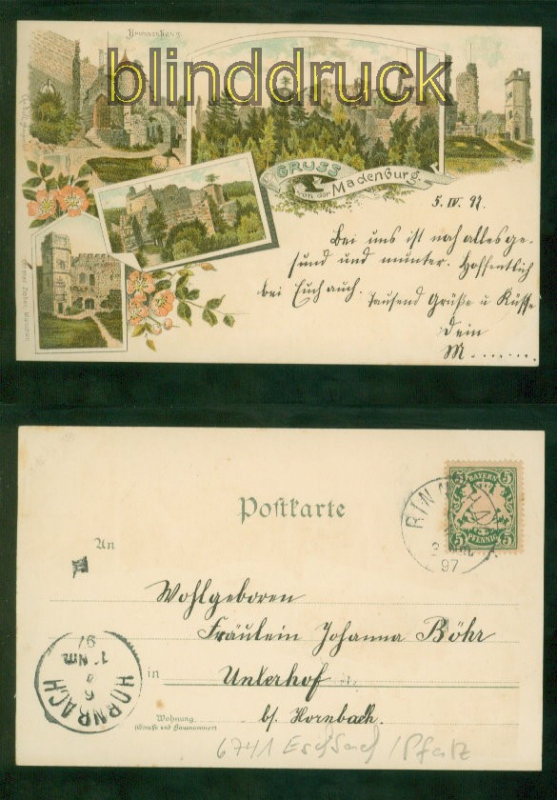 blinddruck
GRUSS
von der
Madenburg.
5. IV. 97.
Bei uns ist noch alles ge-
sund und munter. Hoffentlich
bei Euch auch. Tausend Grüße u Küsse
Dein
M......
Postkarte
BAYERN
5 5
PFENNIG
97
An
Wohlgeboren
Fräulein Johanna Böhr
in Unterhof
bs. Hornbach.
Wohnung
(Straße und Hausnummer)
HORNBACH
6
1 Nm
97
6741 Eschbach / Pfalz